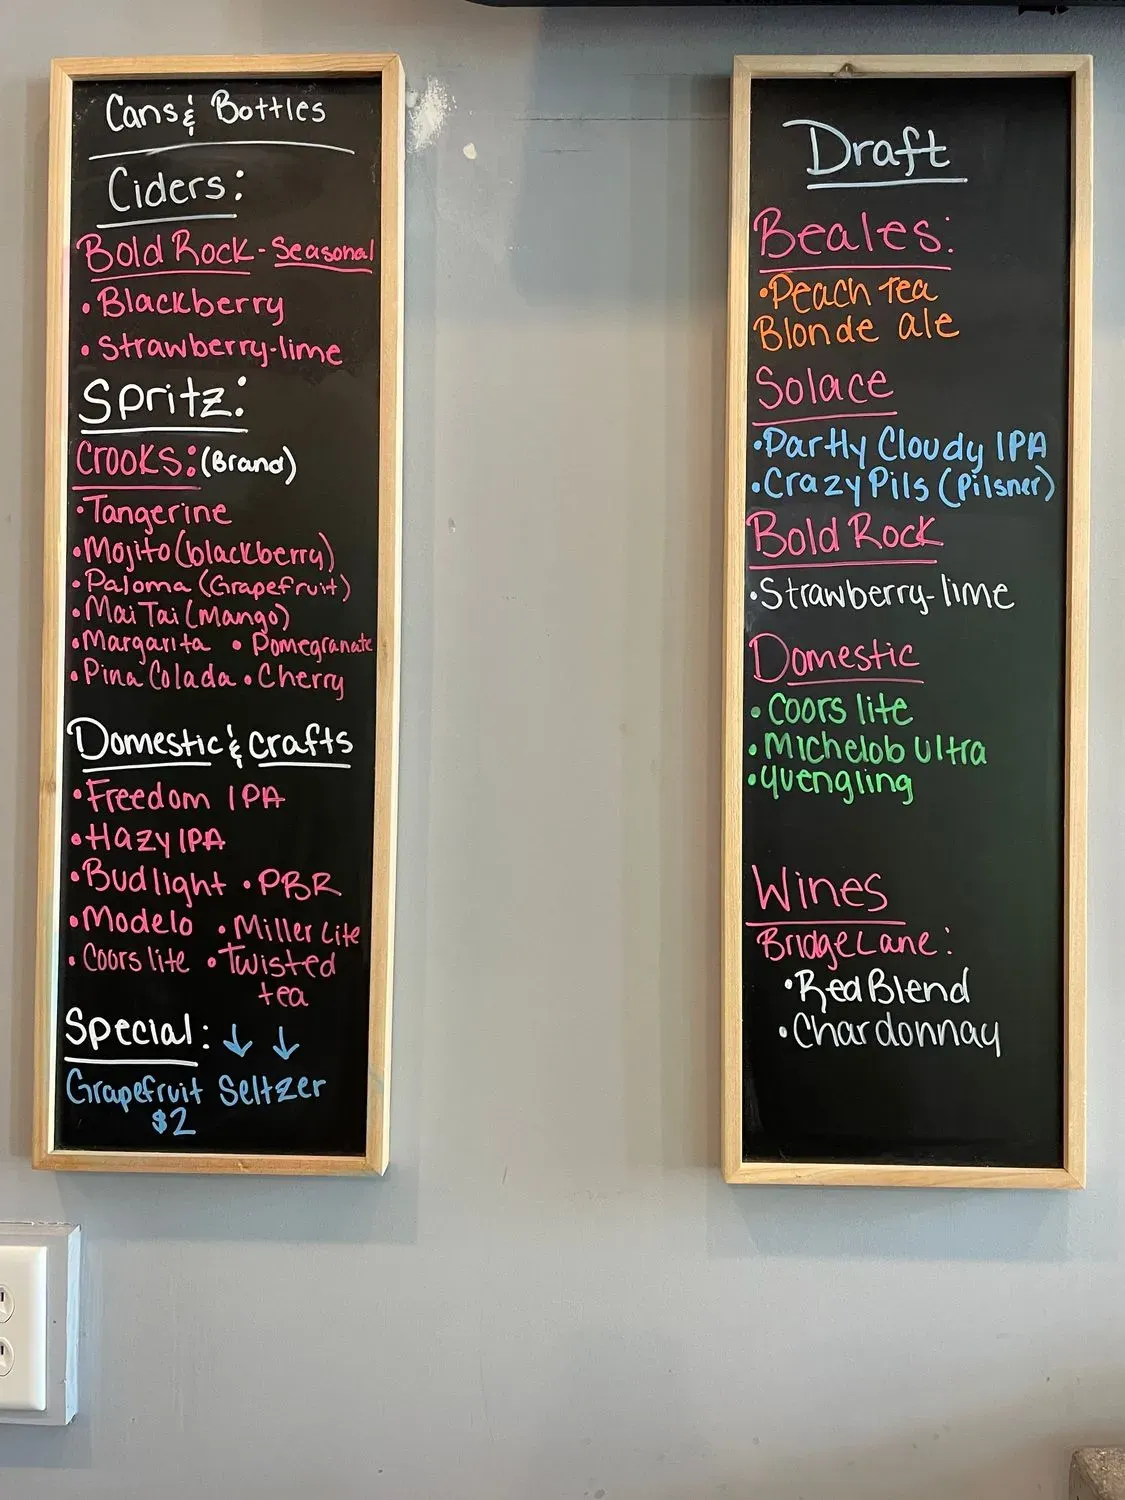 Cans & Bottles
Ciders:
Bold Rock - Seasonal
• Blackberry
• Strawberry-lime
Spritz:
Crooks: (Brand)
• Tangerine
• Mojito (blackberry)
• Paloma (Grapefruit)
• Mai Tai (Mango)
• Margarita • Pomegranate
• Pina Colada • Cherry
Domestic & crafts
• Freedom IPA
• Hazy IPA
• Bud light • PBR
• Modelo • Miller Lite
• Coors lite • Twisted
tea
Special: ↓ ↓
Grapefruit Seltzer
$2
Draft
Beales:
• Peach Tea
Blonde ale
Solace
• Partly Cloudy IPA
• Crazy Pils (Pilsner)
Bold Rock
• Strawberry-lime
Domestic
• Coors lite
• Michelob Ultra
• yuengling
Wines
Bridge Lane:
• Red Blend
• Chardonnay